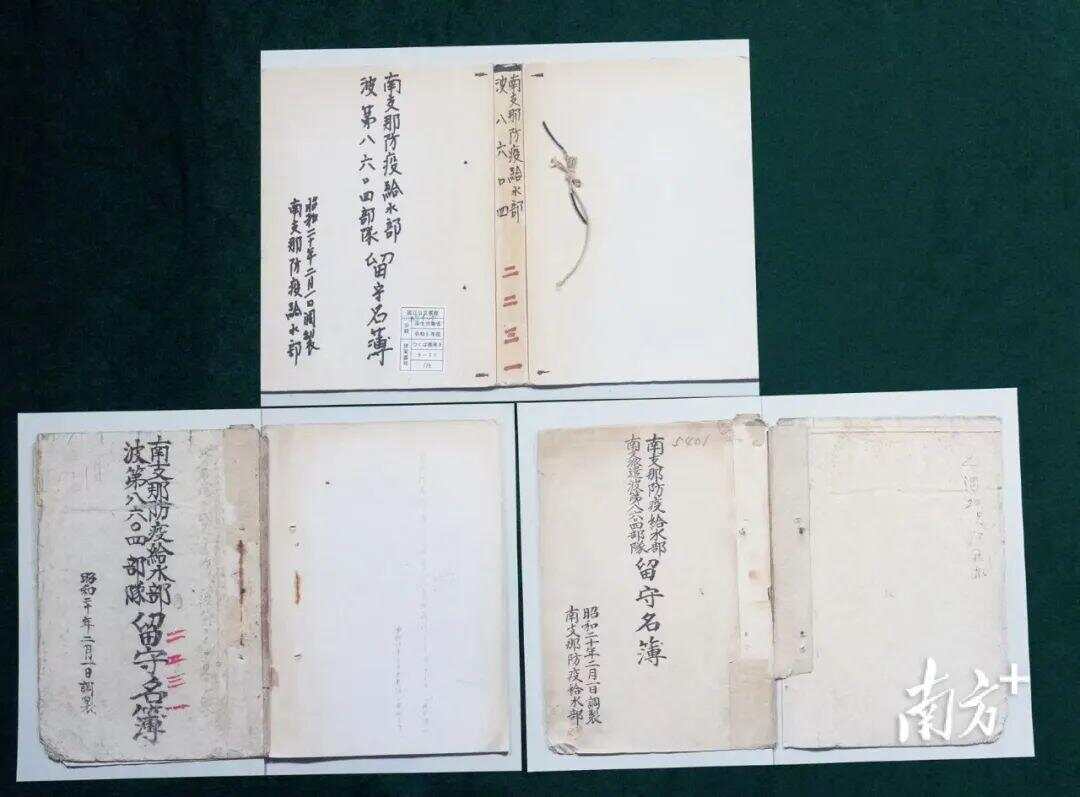 南支那防疫給水部
波第八六〇四部隊 留守名簿
昭和二十年二月一日調製
南支那防疫給水部
南支那防疫給水部
波 八六〇四
二二三一
国立公文書館
分館
厚生労働省
つくば書庫
南支那防疫給水部
波第八六〇四部隊 留守名簿
昭和二十年二月一日調製
二二三一
5401
南支那防疫給水部
南支派遣波第八六〇四部隊 留守名簿
昭和二十年二月一日調製
南支那防疫給水部
南方+